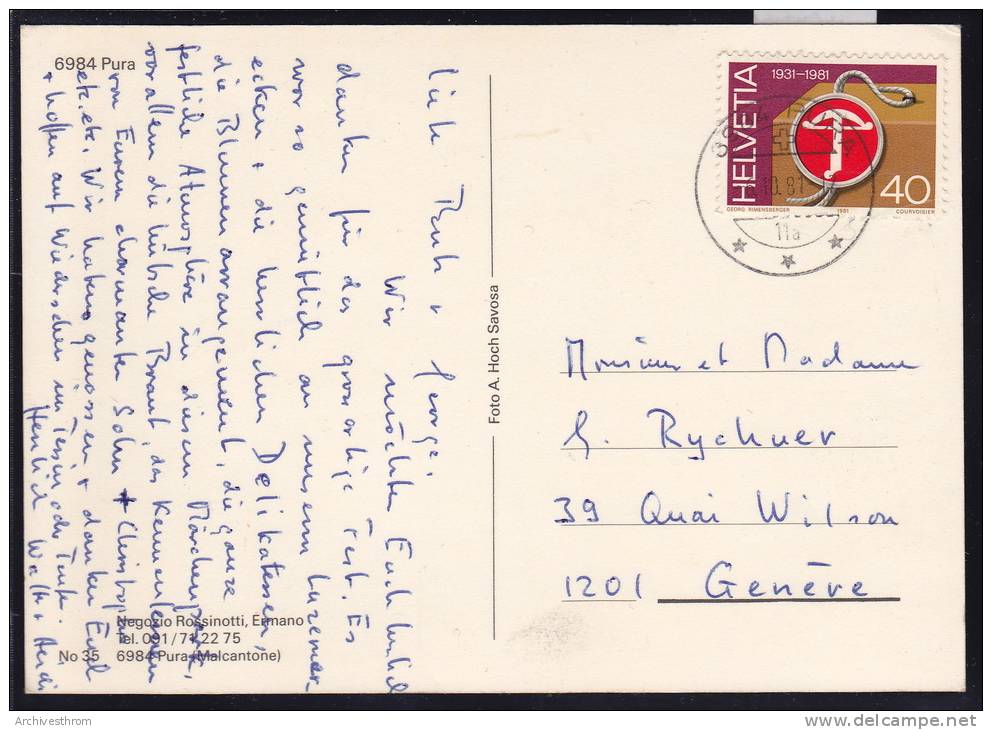 6984 Pura
Liebe Ruth + George,
Wir möchten Euch herzlich
danken für das grossartige Fest. Es
war so gemütlich an unsern Luzerner
ecken + die herrlichen Delikatessen,
die Blumenarrangement, die ganze
festliche Atmosphäre in diesem Märchenpark,
vor allem die hübsche Braut, das Kennenlernen
von Eurem charmanten Sohn +
etc. etc. Wir haben's genossen + danken Euch
+ hoffen auf Wiedersehen im Tessin oder
Herzlich Walti + Heidi
Negozio Rossinotti, Ermano
Tel. 091/71 22 75
No 35 6984 Pura (Malcantone)
Foto A. Hoch Savosa
HELVETIA
1931-1981
40
GEORG RIMENSBERGER 1981 COURVOISIER
10.81
11a
Monsieur et Madame
G. Rychner
39 Quai Wilson
1201 Genève
Archivesthrom
www.delcampe.net